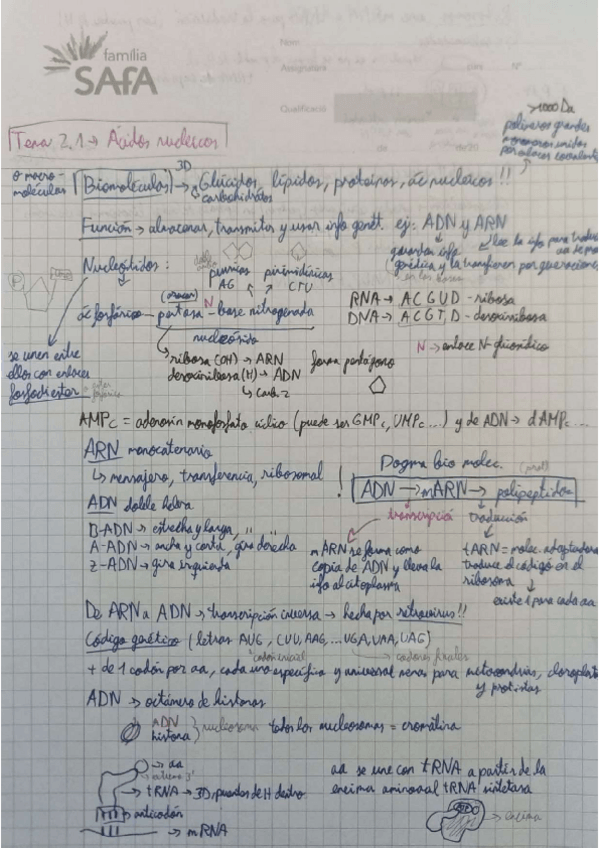 família
SAFA
Nom
Assignatura
Curs
Nº
Qualificació
de
de 20
>1000 Da
polímeros grandes
monómeros unidos
por enlaces covalentes
Tema 2.1 → Ácidos nucleicos
o macro-
moléculas
Biomoléculas → 3D Glúcidos, lípidos, proteínas, ác nucleicos !!
carbohidratos
Función → almacenar, transmitir y usar info genét. ej: ADN y ARN
guardan info
genética y la transfieren por generaciones
lee la info para traducir
Nucleótidos:
purinas
AG
pirimidínicas
CTU
ác fosfórico - pentosa - base nitrogenada
(azúcar)
N
nucleósido
RNA → A C G U D - ribosa
DNA → A C G T, D - desoxirribosa
N → enlace N-glucosídico
se unen entre
ellos con enlaces
fosfodiester
ribosa (OH) → ARN
desoxirribosa (H) → ADN
carb. 2
forma pentágono
AMPc = adenosín monofosfato cíclico (puede ser GMPc, UMPc...) y de ADN → dAMPc...
ARN monocatenario
↳ mensajero, transferencia, ribosomal
ADN doble hélice
B-ADN → estrecha y larga, ,,
A-ADN → ancha y corta, giro derecha
Z-ADN → gira izquierda
!
Dogma bio molec.
(prot)
ADN → mARN → polipeptidos
transcripción
traducción
mARN se forma como
copia de ADN y lleva la
info al citoplasma
tARN = molec. adaptadora
traduce el código en el
ribosoma
existe 1 para cada aa
De ARN a ADN → transcripción inversa → hecha por retrovirus!!
Código genético (letras AUG, CUU, AAG, ... UGA, UAA, UAG)
codón inicial
codones finales
+ de 1 codón por aa, cada uno específico y universal menos para mitocondrias, cloroplastos
y protistas
ADN → octámero de histonas
ADN
histona
nucleosoma
todos los nucleosomas = cromatina
aa
extremo 3'
tRNA → 3D, puentes de H dentro
anticodón
mRNA
aa se une con tRNA a partir de la
enzima aminoacil tRNA sintetasa
enzima